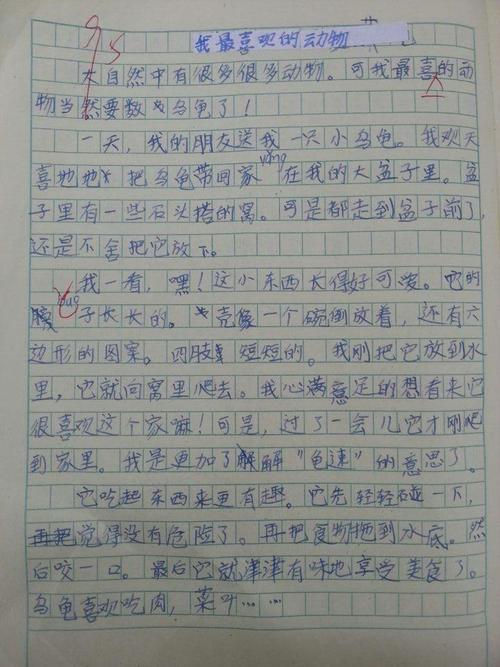 95
我最喜欢的动物
大自然中有很多很多动物。可我最喜的动
物当然要数乌龟了！
一天，我的朋友送我一只小乌龟。我欢天
喜地地把乌龟带回家yǎng在我的大盆子里。盆
子里有一些石头搭的窝。可是都走到盆子前了，
还是不舍把它放下。
我一看，嘿！这小东西长得好可爱。它的
子长长的。壳像一个碗倒放着，还有六
边形的图案。四肢短短的。我刚把它放到水
里，它就向窝里爬去。我心满意足的想看来它
很喜欢这个家嘛！可是，过了一会儿它才刚爬
到家里。我是更加了解“龟速”的意思了。
它吃起东西来更有趣。它先轻轻碰一下，
觉得没有危险了。再把食物拖到水底。然
后咬一口。最后它就津津有味地享受美食了。
乌龟喜欢吃肉，菜叶……